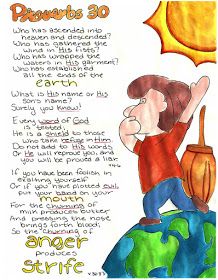 Proverbs 30
Who has ascended into
heaven and descended?
Who has gathered the
wind in His fists?
Who has wrapped the
waters in His garment?
Who has established
all the ends of the
earth
What is His name or His
son's name?
Surely you know!
Every word of God
is tested;
He is a shield to those
who take refuge in Him.
Do not add to His words
Or He will reprove you, and
you will be proved a liar
If you have been foolish in
exalting yourself
Or if you have plotted evil,
put your hand on your
mouth
For the churning of
milk produces butter
And pressing the nose
brings forth blood;
So the churning of
anger
produces
strife